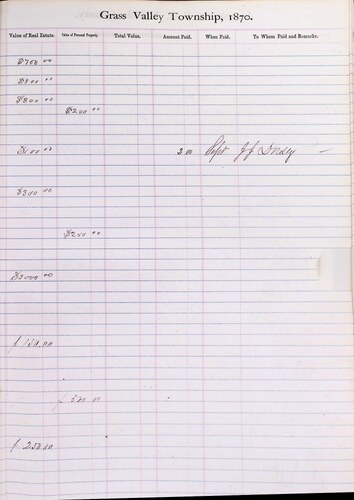 Grass Valley Township, 1870.
Value of Real Estate. Value of Personal Property. Total Value. Amount Paid. When Paid. To Whom Paid and Remarks.
$700 00
$800 00
$800 00
$200 00
$100 00 3 00 J J
$300 00
$200 00
$3000 00
$ 150.00
$ 500 00
$ 250.00